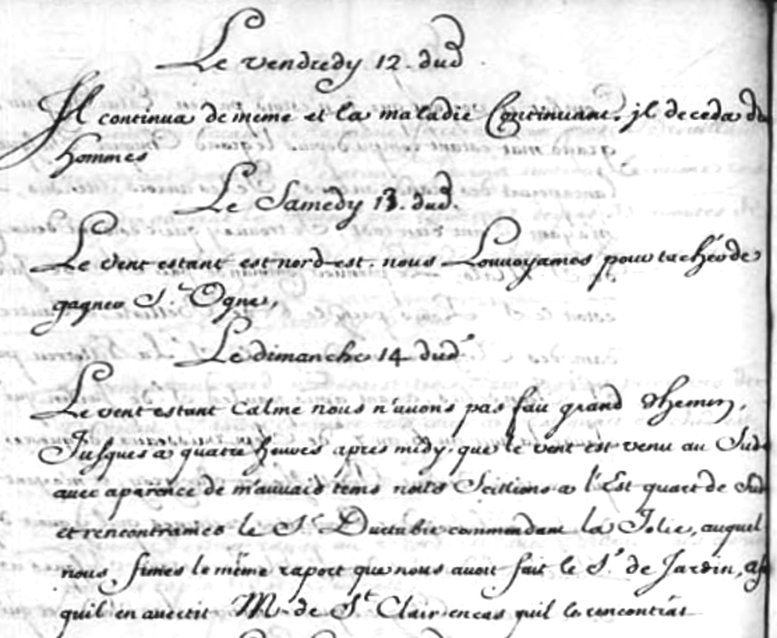 Le vendredy 12. dud.
Il continua de meme et la maladie Continuant. il deceda de
hommes
Le Samedy 13. dud.
Le vent estant est nord-est. nous Louvoyames pour tacher de
gagner St. Ogne,
Le dimanche 14 dud.
Le vent estant Calme nous n'avons pas fait grand chemin,
Jusques a quatre heures apres midy, que le vent est venu au Sud
avec aparence de mauvais tems nous a l'Est quart de Sud
et rencontrames le Sr. commandant la Jolie, auquel
nous fimes le même raport que nous avoit fait le Sr. de Jardin,
quil en avertit Mr. de St. Clair encas quil le rencontrat